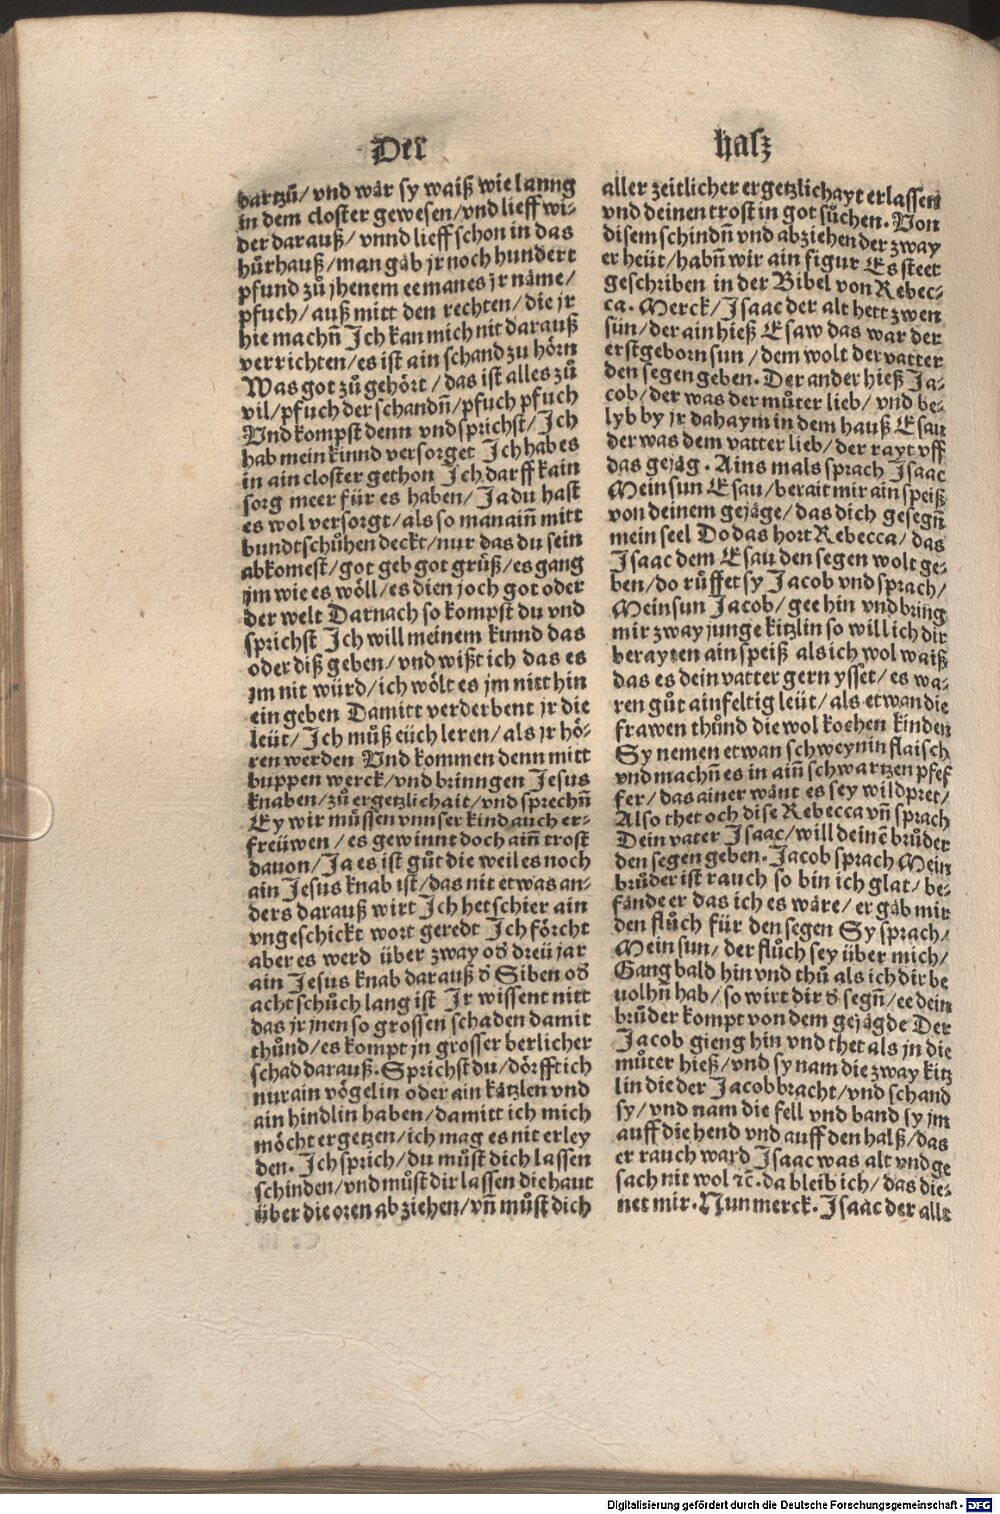 Der hasz
dartzů/ vnd wär sy waiß wie lanng
in dem closter gewesen/vnd lieff wi-
der darauß/ vnnd lieff schon in das
hůrhauß/man gäb jr noch hundert
pfund zů jhenem ee man es jr näme/
pfuch/ auß mitt den rechten/ die jr
hie machñ Ich kan mich nit darauß
verrichten/es ist ain schand zu hörn
Was got zů gehört/ das ist alles zů
vil/pfuch der schandñ/pfuch pfuch
Vnd kompst denn vnd sprichst/ Ich
hab mein kinnd versorget Ich hab es
in ain closter gethon Ich darff kain
sorg meer für es haben/ Ja du hast
es wol versorgt/als so man ainñ mitt
bundtschůhen deckt/nur das du sein
abkomest/got geb got grüß/es gang
jm wie es wöll/es dien joch got oder
der welt Darnach so kompst du vnd
sprichst Ich will meinem kinnd das
oder diß geben/vnd wißt ich das es
jm nit würd/ich wölt es jm nitt hin
ein geben Damitt verderbent jr die
leüt/ Ich můß eüch leren/als jr hö-
ren werden Vnd kommen denn mitt
buppen werck/vnd brinngen Jesus
knaben/zů ergetzlichait/vnd sprechñ
Ey wir müssen vnnser kind auch er-
freüwen/es gewinnt doch ainñ trost
dauon/Ja es ist gůt die weil es noch
ain Jesus knab ist/das nit etwas an-
ders darauß wirt Ich het schier ain
vngeschickt wort geredt Ich förcht
aber es werd über zway od̓ dreü jar
ain Jesus knab darauß d̓ Siben od̓
acht schůch lang ist Ir wissent nitt
das jr jnen so grossen schaden damit
thůnd/es kompt jn grosser herlicher
schad darauß. Sprichst du/dörfft ich
nur ain vögelin oder ain kätzlen vnd
ain hindlin haben/damitt ich mich
möcht ergetzen/ich mag es nit erley
den. Ich sprich/du můst dich lassen
schinden/vnd můst dir lassen die haut
über die oren ab ziehen/vñ můst dich
aller zeitlicher ergetzlichayt erlassen
vnd deinen trost in got sůchen. Von
disem schindñ vnd abziehen der zway
er heüt/habñ wir ain figur Es steet
geschriben in der Bibel von Rebec-
ca. Merck/Isaac der alt hett zwen
sün/der ain hieß Esaw das war der
erstgeborn sun/dem wolt der vatter
den segen geben. Der ander hieß Ja-
cob/der was der můter lieb/vnd be-
lyb by jr dahaym in dem hauß Esau
der was dem vatter lieb/der rayt vff
das gejäg. Ains mals sprach Isaac
Mein sun Esau/berait mir ain speiß
von deinem gejäge/das dich gesegñ
mein seel Do das hort Rebecca/das
Isaac dem Esau den segen wolt ge-
ben/do růffet sy Jacob vnd sprach/
Mein sun Jacob/gee hin vnd bring
mir zway junge kitzlin so will ich dir
berayten ain speiß als ich wol waiß
das es dein vatter gern ysset/es wa-
ren gůt ainfeltig leüt/als etwan die
frawen thůnd die wol kochen kinden
Sy nemen etwan schweynin flaisch
vnd machñ es in ainñ schwartzen pfef
fer/das ainer wänt es sey wildpret/
Also thet och dise Rebecca vñ sprach
Dein vater Isaac/will deinē brůder
den segen geben. Jacob sprach Mein
brůder ist rauch so bin ich glat/be-
fände er das ich es wäre/er gäb mir
den flůch für den segen Sy sprach/
Mein sun/der flůch sey über mich/
Gang bald hin vnd thů als ich dir be
uolhñ hab/so wirt dir d̓ segñ/ee dein
brůder kompt von dem gejägde Der
Jacob gieng hin vnd thet als jn die
můter hieß/vnd sy nam die zway kitz
lin die der Jacob bracht/vnd schand
sy/vnd nam die fell vnd band sy jm
auff die hend vnd auff den halß/das
er rauch ward Isaac was alt vnd ge
sach nit wol ꝛc̄. da bleib ich/das die-
net mir. Nun merck. Isaac der alte
Digitalisierung gefördert durch die Deutsche Forschungsgemeinschaft - DFG